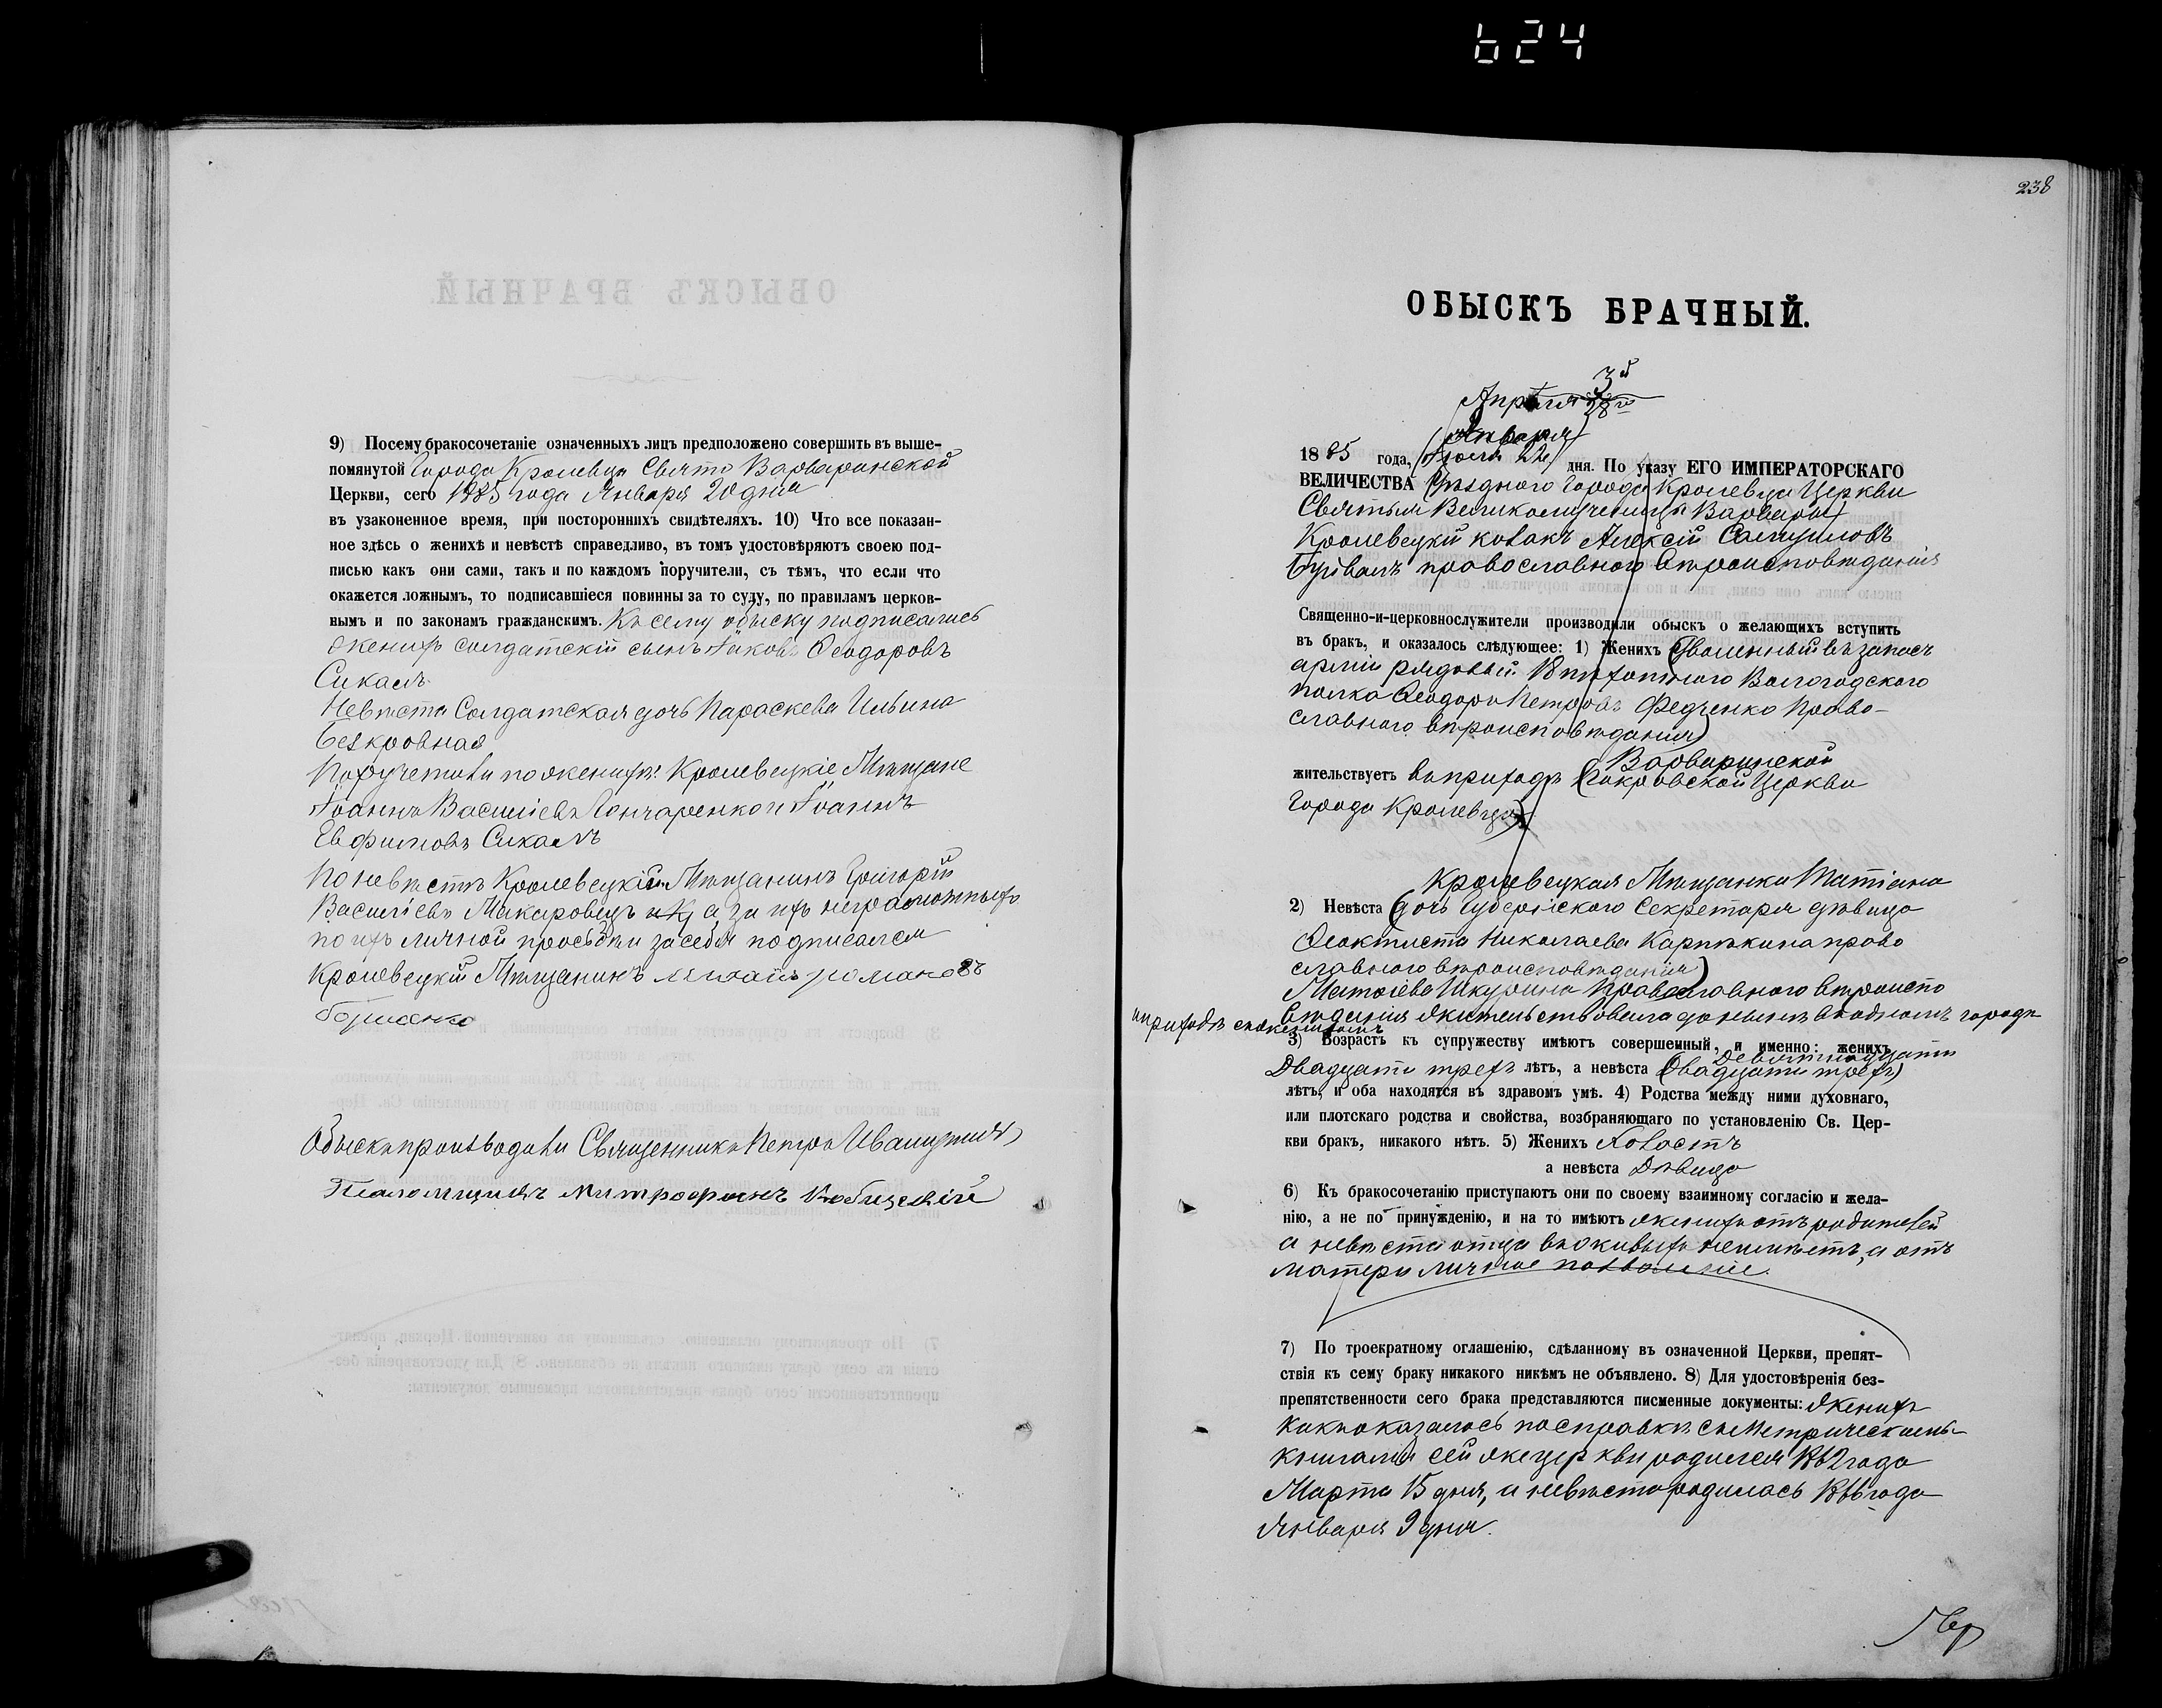 624
9) Посему бракосочетаніе означенныхъ лицъ предположено совершить въ выше-
помянутой Города Кролевца Свято Варваринской
Церкви, сего 1885 года Января 20 дня
въ узаконенное время, при постороннихъ свидѣтеляхъ. 10) Что все показан-
ное здѣсь о женихѣ и невѣстѣ справедливо, въ томъ удостовѣряютъ своею под-
писью какъ они сами, такъ и по каждомъ поручители, съ тѣмъ, что если что
окажется ложнымъ, то подписавшіеся повинны за то суду, по правиламъ церков-
нымъ и по законамъ гражданскимъ. Къ сему обыску подписались
женихъ солдатскій сынъ Іаковъ Ѳеодоровъ
Сикаль
Невѣста Солдатская дочь Параскева Ильина
Безкровная
Поручители по женихѣ: Кролевецкіе Мѣщане
Іоаннъ Василіевъ Гончаренко и Іоаннъ
Евфимовъ Сикаль
По невѣстѣ Кролевецкій Мѣщанинъ Григорій
Василіевъ Макаровецъ а за ихъ неграмотныхъ
по ихъ личной просьбѣ и за себя подписался
Кролевецкій Мѣщанинъ Романовъ
Обыскъ производили Священникъ Петръ
Псаломщикъ Митрофанъ
238
ОБЫСКЪ БРАЧНЫЙ.
3й
Апрѣля 28го
Января
1885 года, 22 дня. По указу ЕГО ИМПЕРАТОРСКАГО
ВЕЛИЧЕСТВА (Уѣзднаго Города Кролевца Церкви
Святыя Великомученицы Варвары)
Кролевецкій козакъ Алексій Самуиловъ
православнаго вѣроисповѣданія
Священно-и-церковнослужители производили обыскъ о желающихъ вступить
въ бракъ, и оказалось слѣдующее: 1) Женихъ (Уволенный въ запасъ
арміи рядовый 18 пѣхотнаго Вологодскаго
полка Ѳеодоръ Петровъ Федченко Право-
славнаго вѣроисповѣданія)
Варваринской
жительствуетъ въ приходѣ (Покровской Церкви
Города Кролевца)
Кролевецкая Мѣщанка Татіана
2) Невѣста (дочь Губернскаго Секретаря дѣвица
Ѳеоктиста Николаева Карпѣкина право
славнаго вѣроисповѣданія)
Матѳіева Шкурина Православнаго вѣроиспо
вѣданія жительствовала до нынѣ въ одномъ городѣ
и приходѣ съ женихомъ
3) Возрастъ къ супружеству имѣютъ совершенный, и именно: женихъ
Девятнадцати
Двадцати трехъ лѣтъ, а невѣста (двадцати трехъ)
лѣтъ, и оба находятся въ здравомъ умѣ. 4) Родства между ними духовнаго,
или плотскаго родства и свойства, возбраняющаго по установленію Св. Цер-
кви бракъ, никакого нѣтъ. 5) Женихъ Холостъ
а невѣста Дѣвица
6) Къ бракосочетанію приступаютъ они по своему взаимному согласію и жела-
нію, а не по принужденію, и на то имѣютъ женихъ отъ родителей
а невѣста отца въ живыхъ неимѣетъ, а отъ
матери личное позволеніе.
7) По троекратному оглашенію, сдѣланному въ означенной Церкви, препят-
ствія къ сему браку никакого никѣмъ не объявлено. 8) Для удостовѣренія без-
препятственности сего брака представляются писменные документы: женихъ
какъ оказалось по справкѣ съ Метрическими
книгами сей же церкви родился 1862 года
Марта 15 дня, а невѣста родилась 1866 года
Января 9 дня.